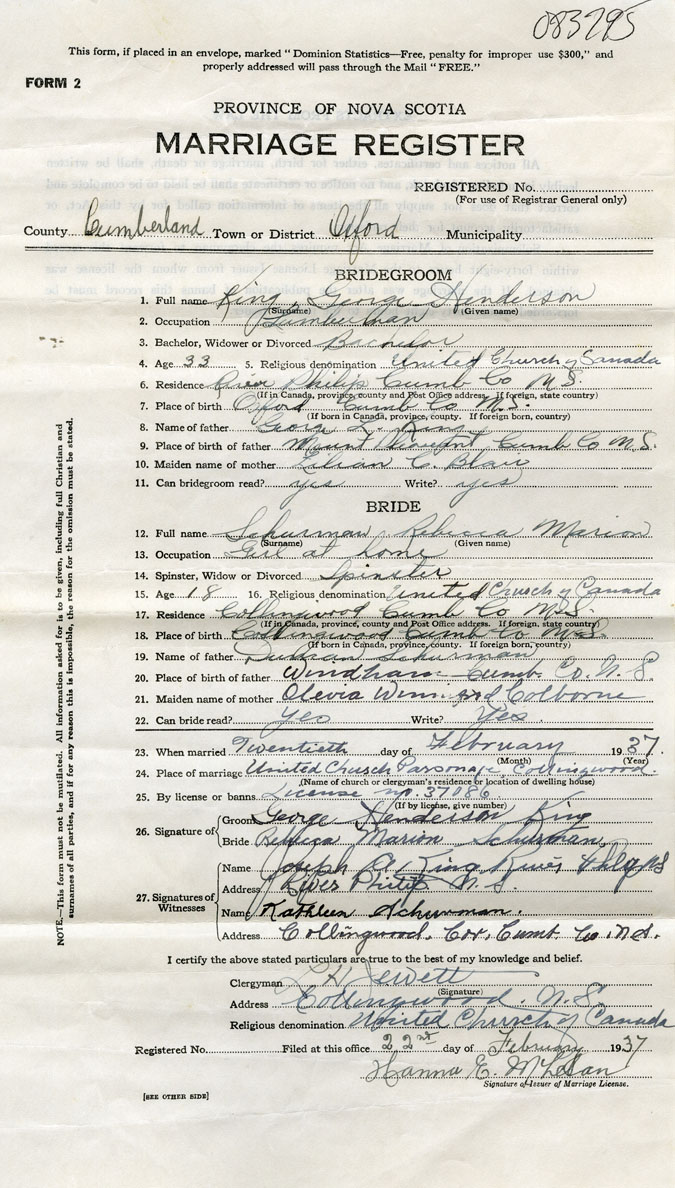 083795
This form, if placed in an envelope, marked "Dominion Statistics—Free, penalty for improper use $300," and
properly addressed will pass through the Mail "FREE."
FORM 2
PROVINCE OF NOVA SCOTIA
MARRIAGE REGISTER
REGISTERED No.
(For use of Registrar General only)
County Cumberland Town or District Oxford Municipality
BRIDEGROOM
1. Full name King, George Henderson
(Surname) (Given name)
2. Occupation Lumberman
3. Bachelor, Widower or Divorced Bachelor
4. Age 33 5. Religious denomination United Church of Canada
6. Residence River Philip Cumb Co N.S.
(If in Canada, province, county and Post Office address. If foreign, state country)
7. Place of birth Oxford Cumb Co N.S.
(If born in Canada, province, county. If foreign born, country)
8. Name of father George L. King
9. Place of birth of father Mount Pleasant Cumb Co N.S.
10. Maiden name of mother Lilian C. Blair
11. Can bridegroom read? yes Write? yes
BRIDE
12. Full name Schurman, Rebecca Marion
(Surname) (Given name)
13. Occupation Girl at home
14. Spinster, Widow or Divorced Spinster
15. Age 18 16. Religious denomination United Church of Canada
17. Residence Collingwood Cumb Co N.S.
(If in Canada, province, county and Post Office address. If foreign, state country)
18. Place of birth Collingwood Cumb Co N.S.
(If born in Canada, province, county. If foreign born, country)
19. Name of father Schurman
20. Place of birth of father Windham Cumb. Co. N.S.
21. Maiden name of mother Olevia Colborne
22. Can bride read? Yes Write? Yes.
23. When married Twentieth day of February 1937.
(Month) (Year)
24. Place of marriage United Church Parsonage, Collingwood.
(Name of church or clergyman's residence or location of dwelling house)
25. By license or banns License no. 37086
(If by license, give number)
26. Signature of Groom George Henderson King
Bride Rebecca Marion Schurman
27. Signatures of Witnesses
Name Joseph King River Philip NS
Address River Philip N.S.
Name Kathleen Schurman.
Address Collingwood, Cor, Cumb. Co. N.S.
I certify the above stated particulars are true to the best of my knowledge and belief.
Clergyman L H Jewett
(Signature)
Address Collingwood. N.S.
Religious denomination United Church of Canada
Registered No. Filed at this office 22nd day of February 1937
Hanna E. McLellan
Signature of Issuer of Marriage License.
[SEE OTHER SIDE]
NOTE.—This form must not be mutilated. All information asked for is to be given, including full Christian and
surnames of all parties, and if for any reason this is impossible, the reason for the omission must be stated.